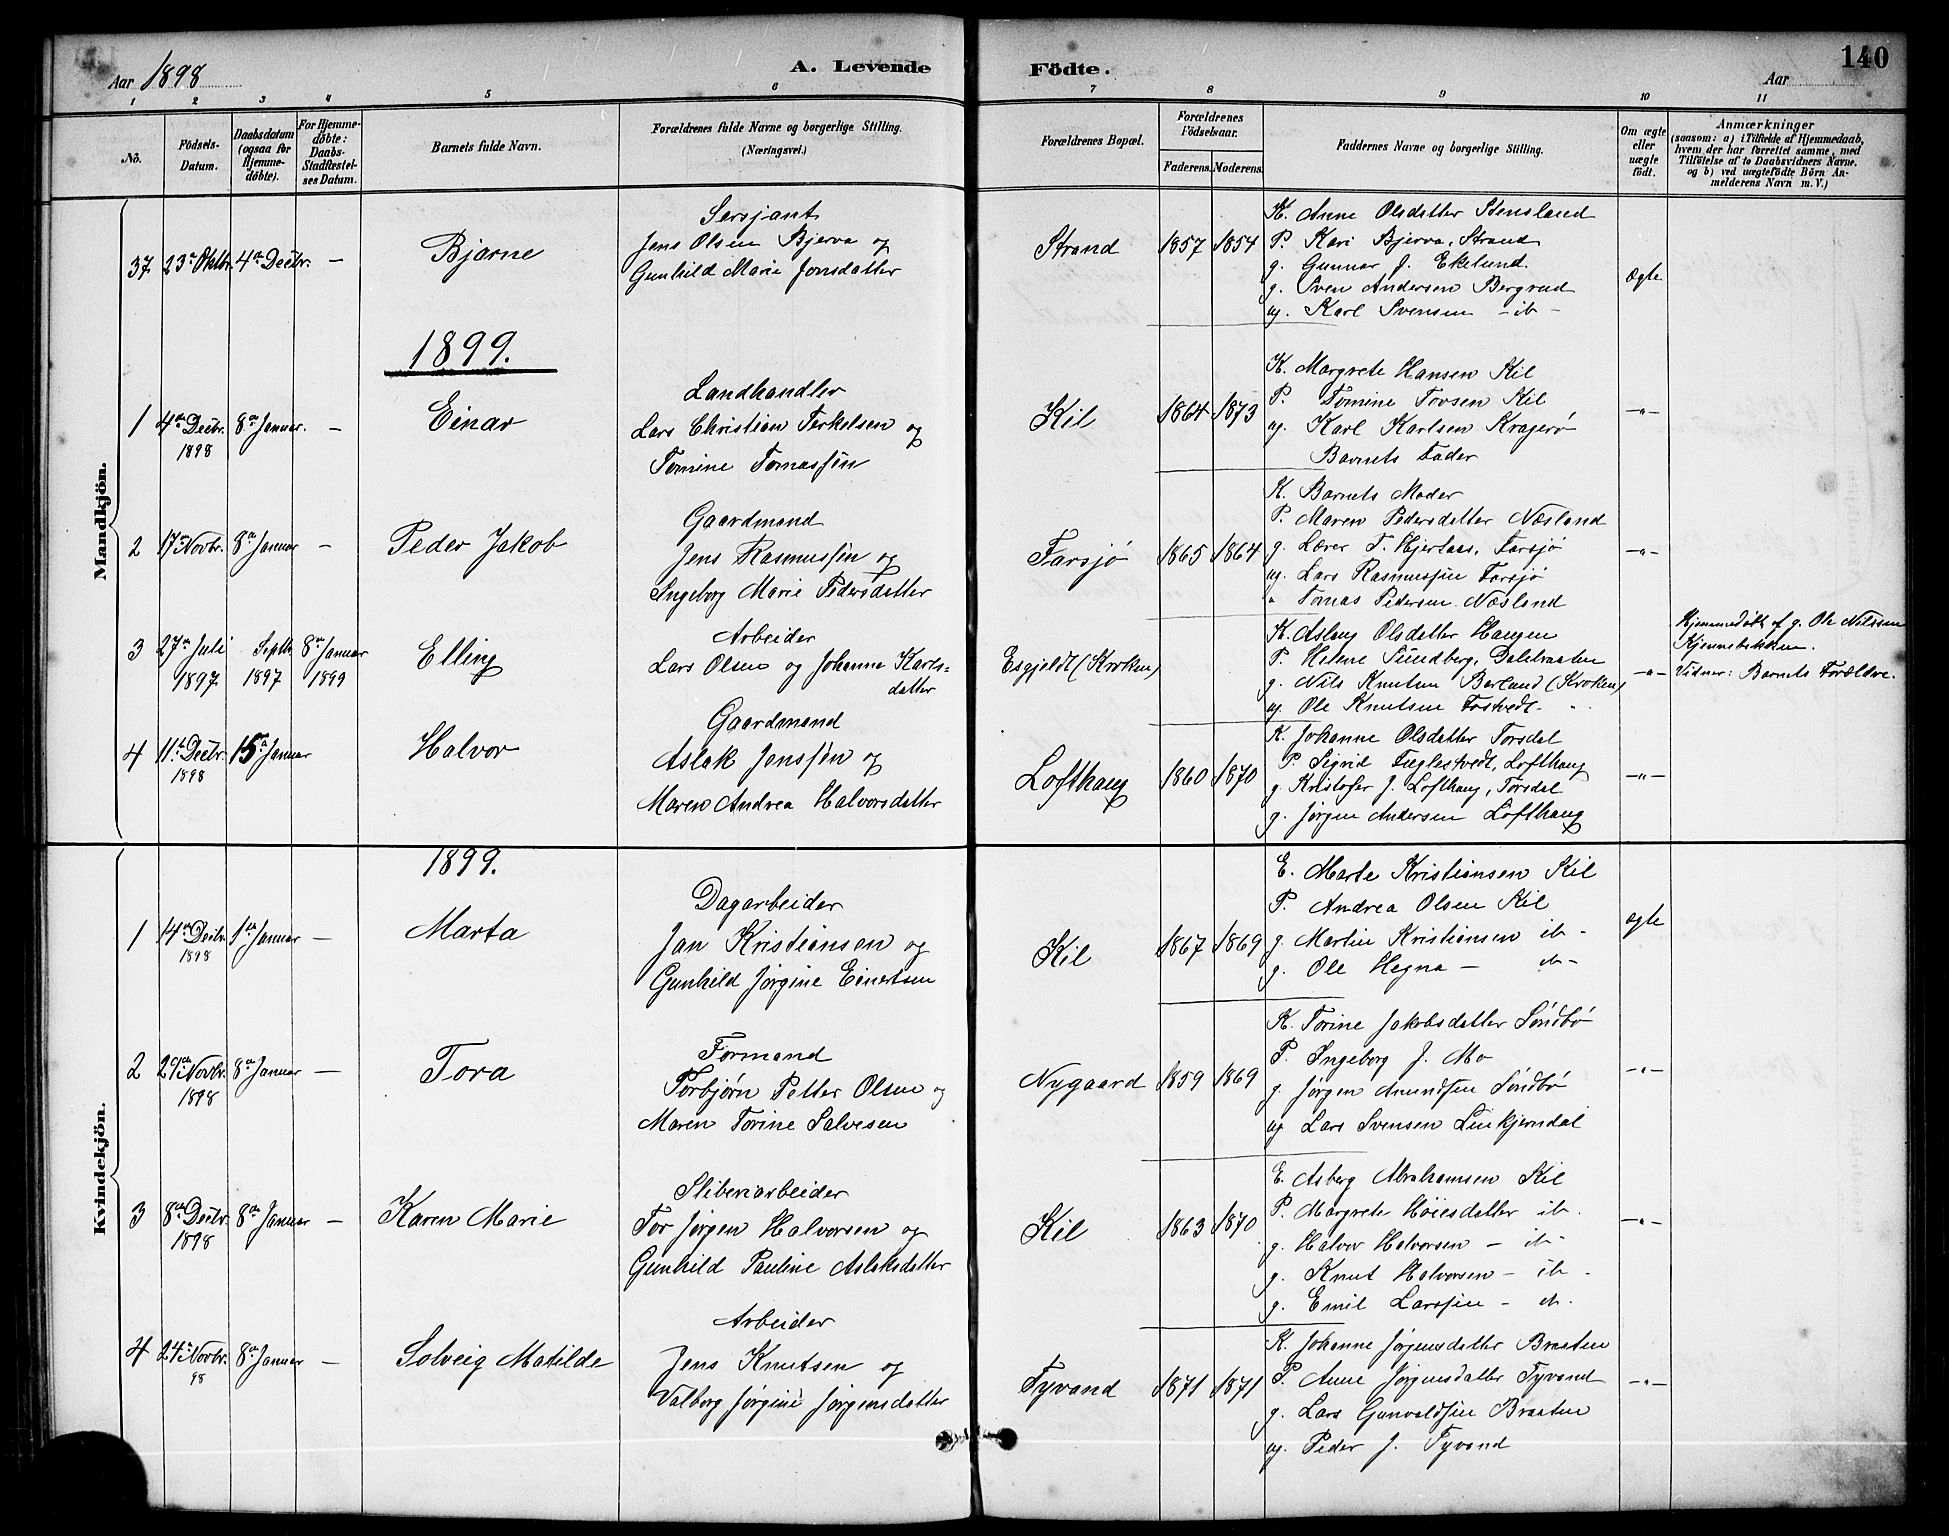 Aar 1898
A. Levende
Födte.
Aar
140
1 2 3 4 5 6 7 8 9 10 11
No.
Födsels-
Datum.
Daabsdatum
(ogsaa for
Hjemme-
döbte).
For Hjemme-
döbte:
Daabs-
Stadfæstel-
ses Datum.
Barnets fulde Navn.
Forældrenes fulde Navne og borgerlige Stilling.
(Næringsvei.)
Forældrenes Bopæl.
Forældrenes
Födselsaar.
Faderens.
Moderens.
Faddernes Navne og borgerlige Stilling.
Om ægte
eller
uægte
født.
Anmærkninger
(saasom: a) i Tilfælde af Hjemmedaab,
hvem der har forrettet samme, med
Tilföielse af to Daabsvidners Navne,
og b) ved uægtefödte Börn An-
melderens Navn m. V.)
Mandkjön.
37. 23de Oktbr. 4de Decbr. - Bjarne
Sersjant
Jens Olsen Bjerva og
Gunhild Marie Jonsdatter
Strand 1857 1854
K. Anne Olsdatter Stensland
P. Kari Bjerva, Strand
g. Gunnar J. Ekelund.
g. Sven Andersen Bergrud
ug. Karl Svensen - ib -
Ægte
1899.
1 4de Decbr. 1898 8de Januar. - Einar
Landhandler
Lars Christian Terkelsen og
Tomine Tomassen
Kil 1864 1873
K. Margrete Hansen Kil
P. Tomine Tovsen Kil
ug. Karl Karlsen Kragerø
Barnets Fader
-"-
2 17de Novbr. 8de Januar - Peder Jakob
Gaardmand
Jens Rasmussen og
Ingeborg Marie Pedersdatter
Farsjø 1865 1864
K. Barnets Moder
P. Maren Pedersdatter Næsland
g. Lærer T. Hjertaas, Farsjø
ug. Lars Rasmussen Farsjø
" Tomas Pedersen Næsland
-"-
3 27de Juli 1897. Septbr 1897 8de Januar 1899 Elling
Arbeider
Lars Olsen og Johanne Karls-
datter
Esgjeldt (Kroken)
K. Aslaug Olsdatter Haugen
P. Helene Sundberg, Dalebraaten
g. Nils Knutsen Barland (Kroken)
ug. Ole Knutsen Tostvedt - "
-"-
Hjemmedøbt af g. Ole Nilssen
Kjennebekken.
Vidner: Barnets Forældre.
4 11te Decbr. 1898 15de Januar Halvor
Gaardmand
Aslak Jenssen og
Maren Andrea Halvorsdatter
Lofthaug 1860 1870
K. Johanne Olsdatter Torsdal
P. Sigrid Fuglestvedt, Lofthaug
g. Kristofer J. Lofthaug, Torsdal
g. Jørgen Andersen Lofthaug
-"-
Kvindekjön.
1899.
1 14de Decbr. 1898 1ste Januar - Marta
Dagarbeider
Jan Kristiansen og
Gunhild Jørgine Einertsen
Kil 1867 1869
E. Marte Kristiansen Kil
P. Andrea Olsen Kil
g. Martin Kristiansen ib -
g. Ole Hegna - ib -
ægte
2 29de Novbr. 1898 8de Januar - Tora
Formand
Torbjørn Petter Olsen og
Maren Torine Salvesen
Nygaard 1859 1869
K. Torine Jakobsdatter Söndbö
P. Ingeborg J. Mo
g. Jørgen Amundsen Söndbö
ug. Lars Svensen Linkjerndal
-"-
3 8de Decbr. 1898 8de Januar - Karen Marie
Sliberiarbeider
Tor Jørgen Halvorsen og
Gunhild Pauline Aslaksdatter
Kil 1863 1870
E. Asberg Abrahamsen Kil
P. Margrete Høiesdatter ib.
g. Halvor Halvorsen - ib -
g. Knut Halvorsen - ib -
g. Emil Larssen - ib.
-"-
4 24de Novbr. 98 8de Januar - Solveig Matilde
Arbeider
Jens Knutsen og
Valborg Jørgine Jørgensdatter
Tyvand 1871 1871
K. Johanne Jørgensdatter Braaten
P. Anne Jørgensdatter Tyvand
g. Lars Gunvaldsen Braaten
ug. Peder J. Tyvand
-"-